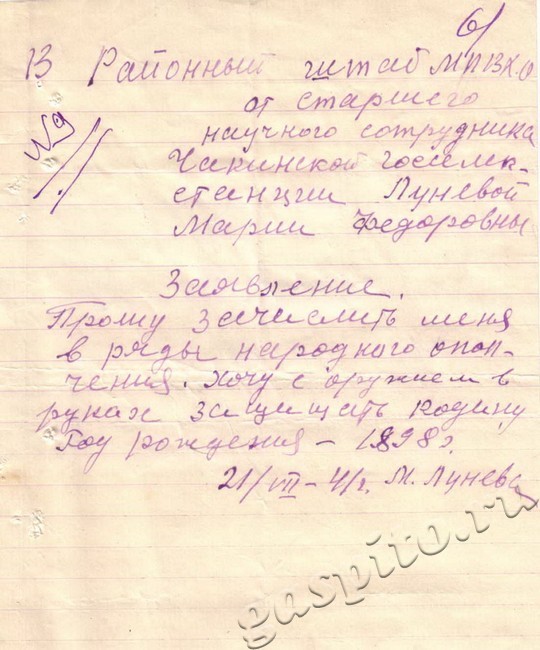 6/
В Районный штаб МПВХО
от старшего
№9
научного сотрудника
Чакинской госселек-
станции Луневой
Марии Федоровны
Заявление.
Прошу зачислить меня
в ряды народного опол-
чения. Хочу с оружием в
руках защищать Родину
Год рождения – 1898 г.
21/VII – 41 г. М. Лунева
gaspito.ru